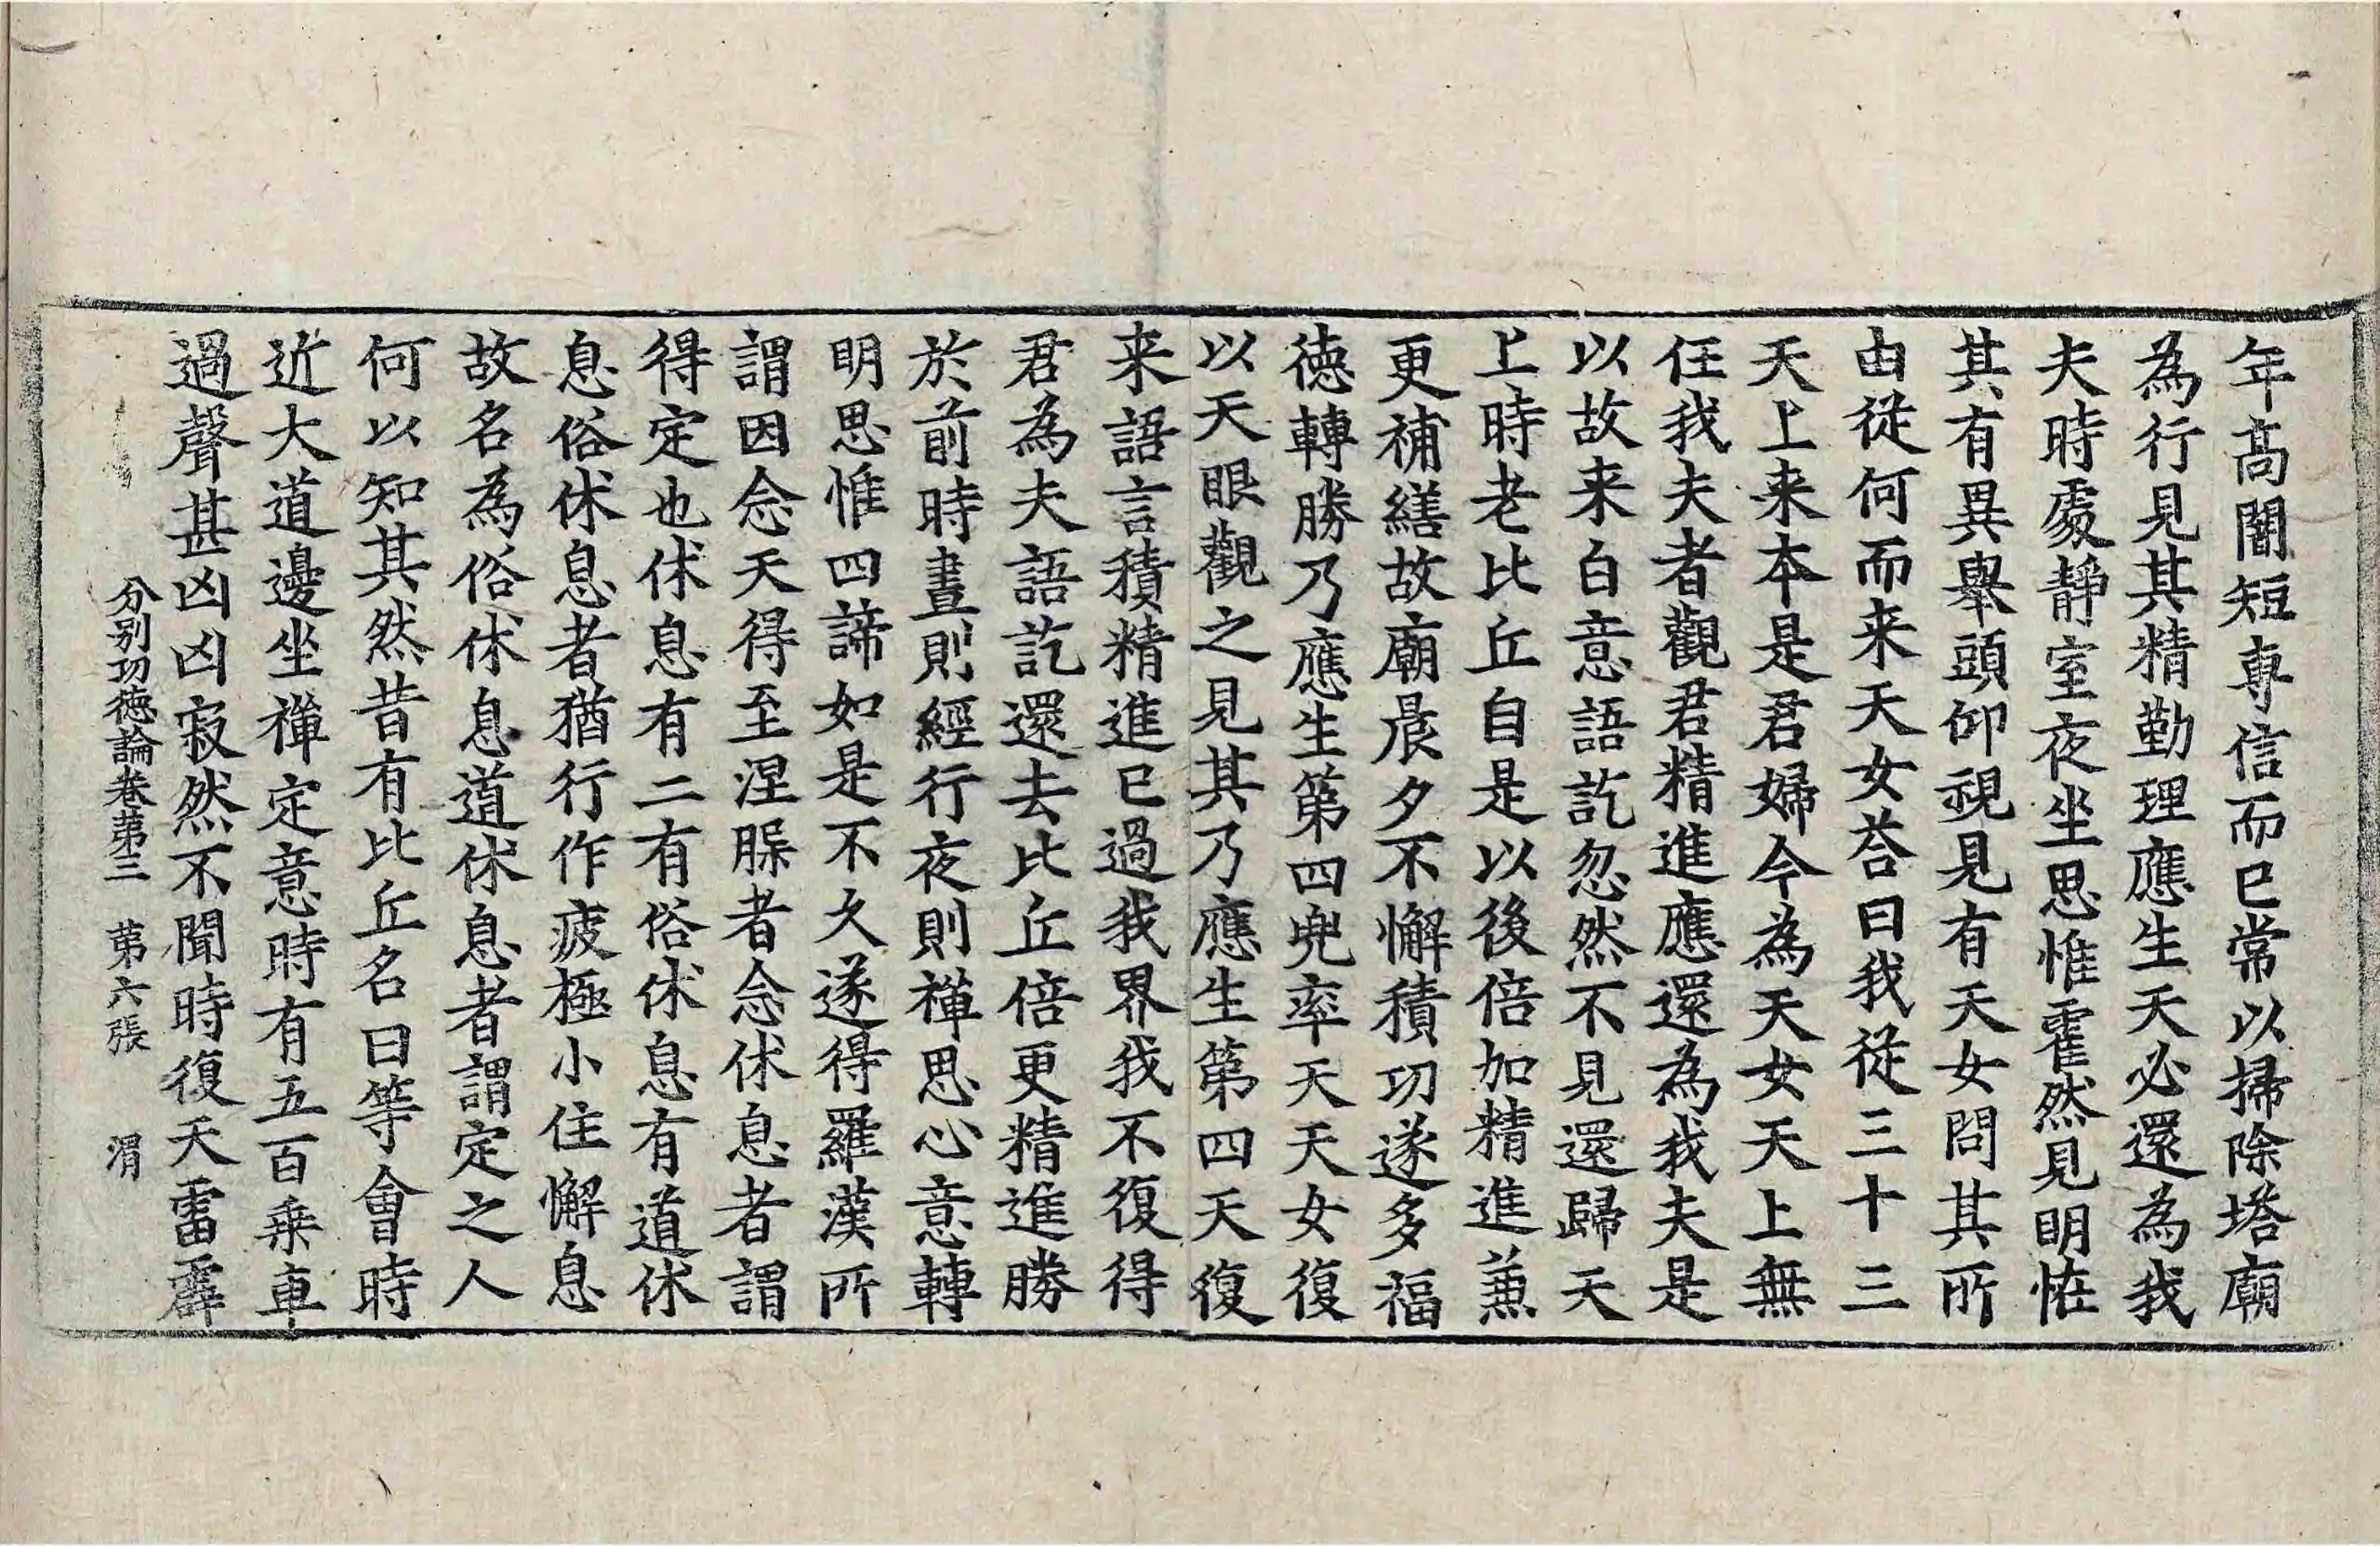 年高闇短專信而已常以掃除塔廟
為行見其精勤理應生天必還為我
夫時處靜室夜坐思惟霍然見明恠
其有異舉頭仰視見有天女問其所
由從何而来天女荅曰我從三十三
天上来本是君婦今為天女天上無
任我夫者觀君精進應還為我夫是
以故来白意語訖忽然不見還歸天
上時老比丘自是以後倍加精進兼
更補繕故廟晨夕不懈積功遂多福
徳轉勝乃應生第四兜率天天女復
以天眼觀之見其乃應生第四天復
来語言積精進已過我界我不復得
君為夫語訖還去比丘倍更精進勝
於前時晝則經行夜則禪思心意轉
明思惟四諦如是不久遂得羅漢所
謂因念天得至涅脲者念休息者謂
得定也休息有二有俗休息有道休
息俗休息者猶行作疲極小住懈息
故名為俗休息道休息者謂定之人
何以知其然昔有比丘名曰等會時
近大道邊坐禪定意時有五百乗車
過聲甚凶凶寂然不聞時復天雷霹
分别功徳論卷苐三　苐六張　渭